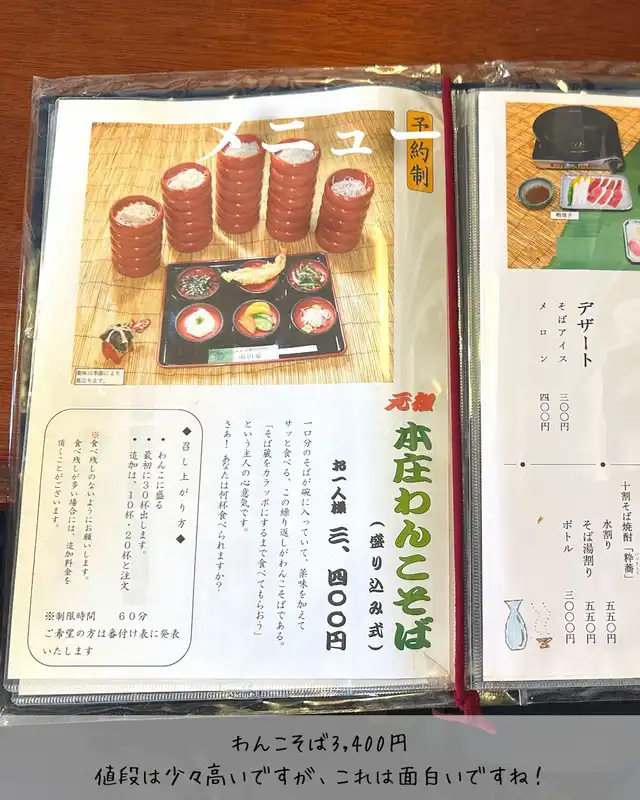 メニュー
予約制
薬味は季節により
異なります。
元祖
本庄わんこそば
(盛り込み式)
お一人様 三、四〇〇円
一口分のそばが碗に入っていて、薬味を加えて
サッと食べる、この繰り返しがわんこそばである。
「そば蔵をカラッポにするまで食べてもらおう」
という主人の心意気です。
さあ!あなたは何杯食べられますか?
◆召し上がり方◆
・わんこに盛る
・最初に30杯出します。
・追加は、10杯・20杯と注文
※食べ残しのないようにお願いします。
食べ残しが多い場合には、追加料金を
頂くことがございます。
※制限時間 60分
ご希望の方は番付け表に発表
いたします
鴨焼き
デザート
そばアイス 三〇〇円
メロン 四〇〇円
十割そば焼酎「粋蕎」
水割り 五五〇円
そば湯割り 五五〇円
ボトル 三〇〇〇円
わんこそば3,400円
値段は少々高いですが、これは面白いですね!